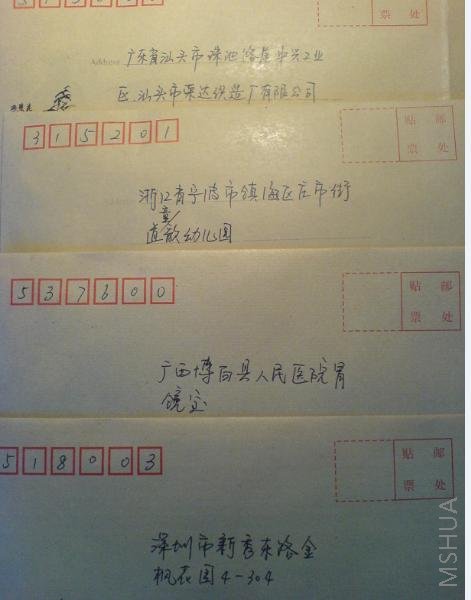 票 处
Address
广东省汕头市珠池路星中兴工业
区汕头市荣达织造厂有限公司
315201
贴 邮
票 处
浙江省宁波市镇海区庄市街
真
直敬幼儿园
537600
贴 邮
票 处
广西博白县人民医院胃
镜室
518003
贴 邮
票 处
深圳市新秀东路金
枫花园4-304
MSHUA